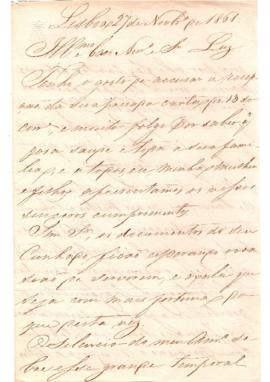 Lisboa 27 de Novbro de 1861
Illmo Exmo Snr. Luz
Tenho o gosto de accusar a recep
ção da sua presada carta de 13 do
corre, e muito folgo por saber q
gosa saude e toda a sua fami
lia, e a todos eu, minha mulher
e filhos apresentamos os nossos
sinceros cumprimentos
Sim Sr, os documentos de seu
Cunhado ficão esperando occa
sião de servirem, e oxalá que
seja com mais fortuna do
que desta vez.
O silencio do meu Amo da
esse grande temporal